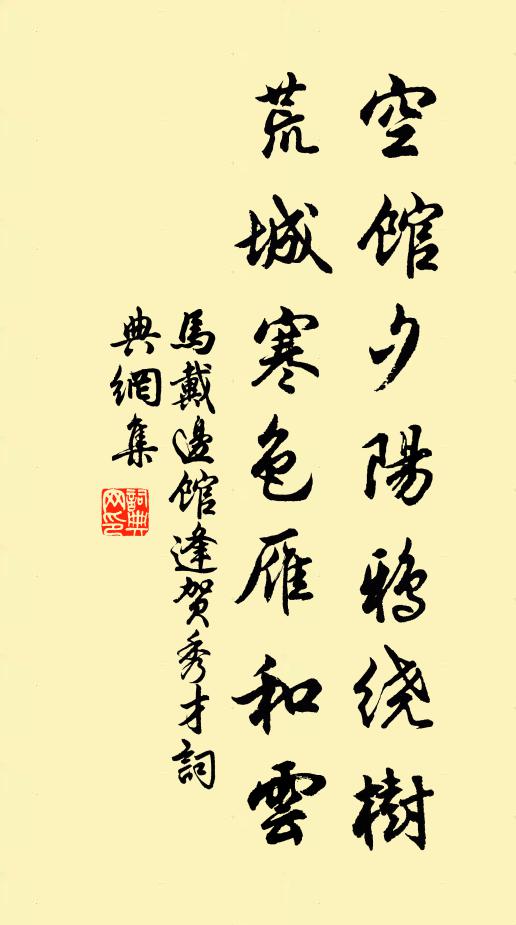 空館夕陽鴉绕樹
荒城寒色雁和雲
馬戴邊館逢賀秀才詞
典網集
詞典
网印